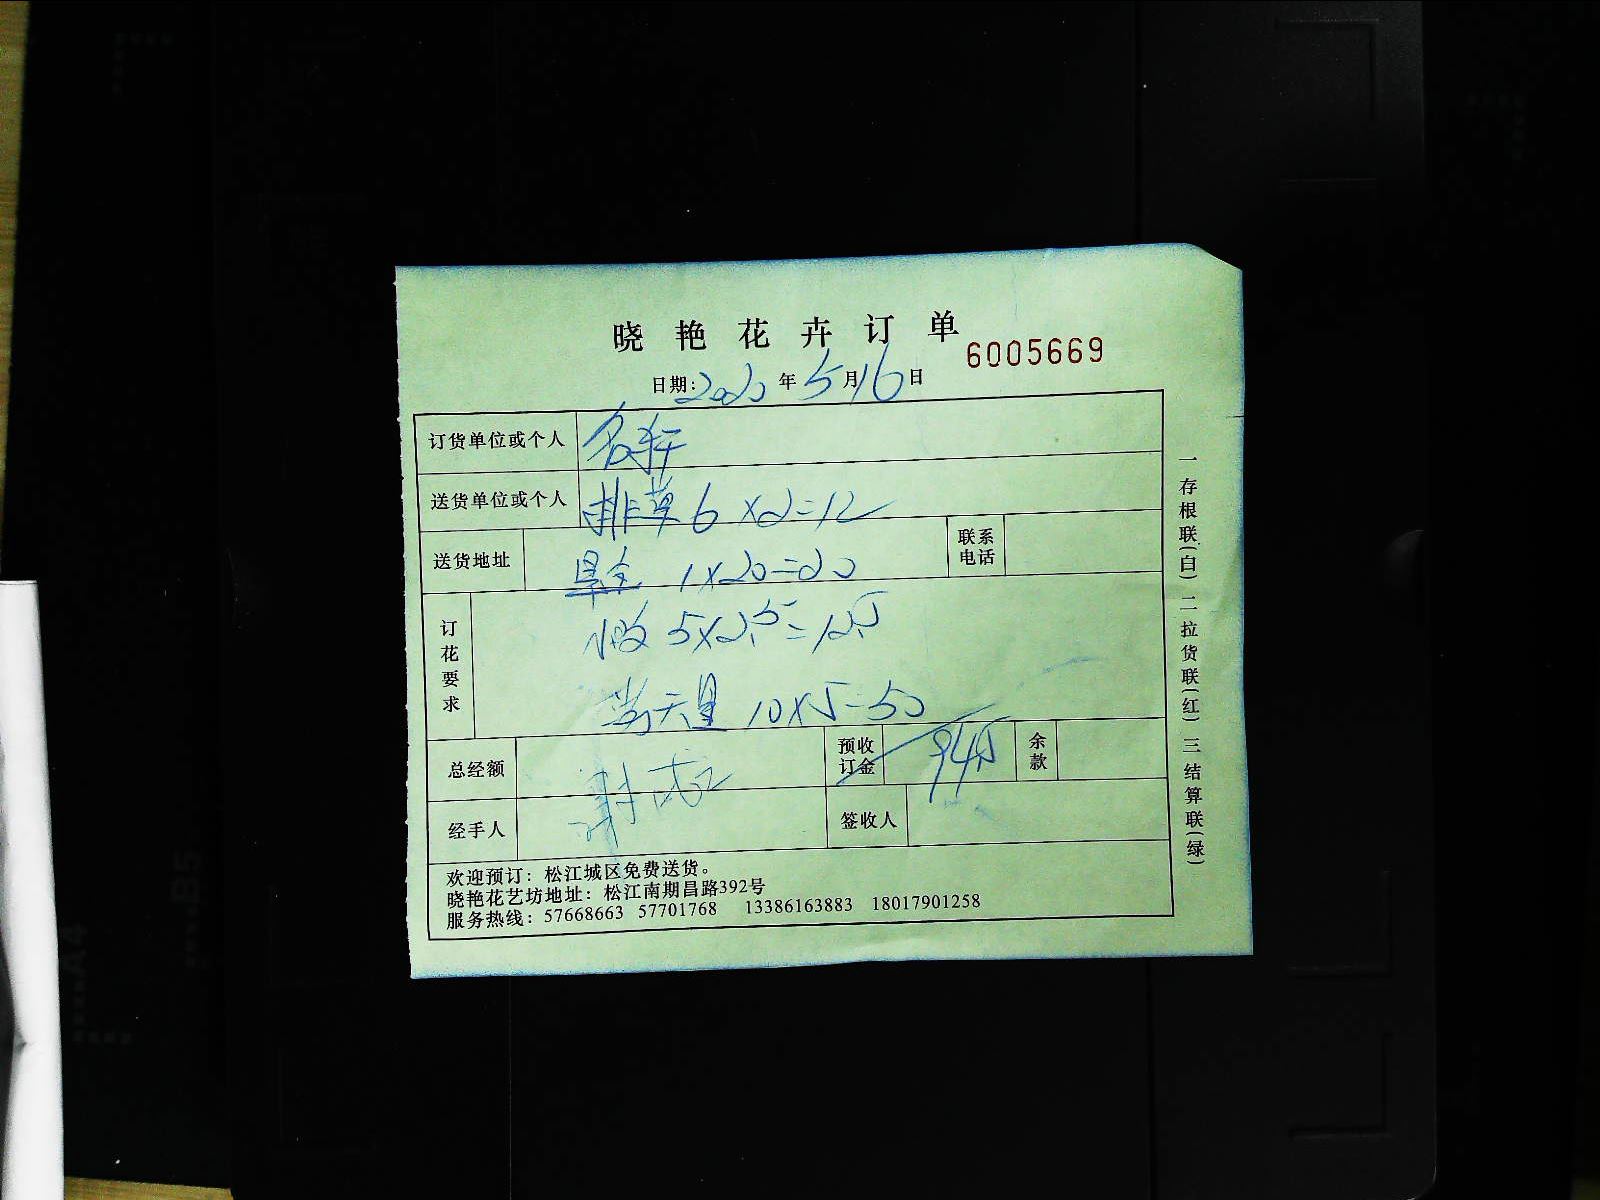 晓艳花卉订单
6005669
日期:2020年5月16日
订货单位或个人
送货单位或个人 排草 6×2=12
送货地址 1×20=20 联系电话
订花要求 5×2.5=12.5
满天星 10×5=50
总经额 预收订金 94.5 余款
经手人 谢 签收人
欢迎预订：松江城区免费送货。
晓艳花艺坊地址：松江南期昌路392号
服务热线：57668663 57701768 13386163883 18017901258
一存根联(白) 二拉货联(红) 三结算联(绿)
B5
A4